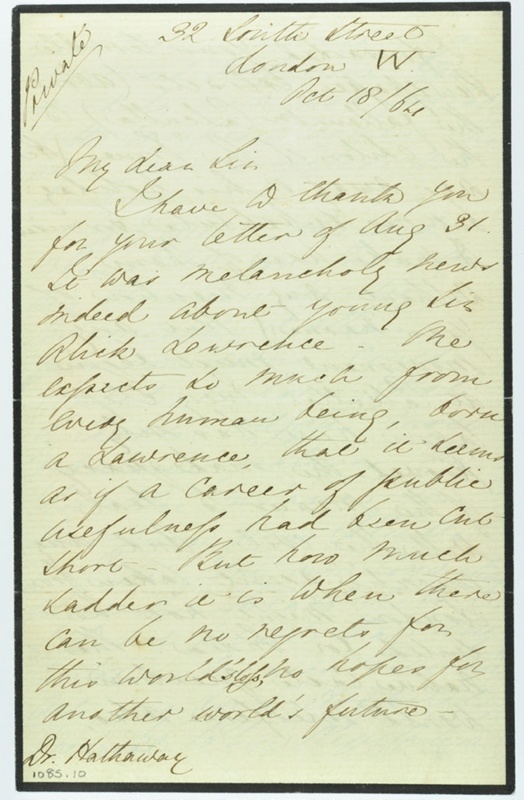 Private
32 South Street
London W.
Oct 18/64
My dear Sir
I have to thank you
for your letter of Aug 31.
It was melancholy news
indeed about young Sir
Alick Lawrence - One
expects so much from
every human being, born
a Lawrence, that it seems
as if a career of public
usefulness had been cut
short - But how much
sadder it is when there
can be no regrets for
this world's loss, no hopes for
another world's future -
Dr. Hathaway
1085.10